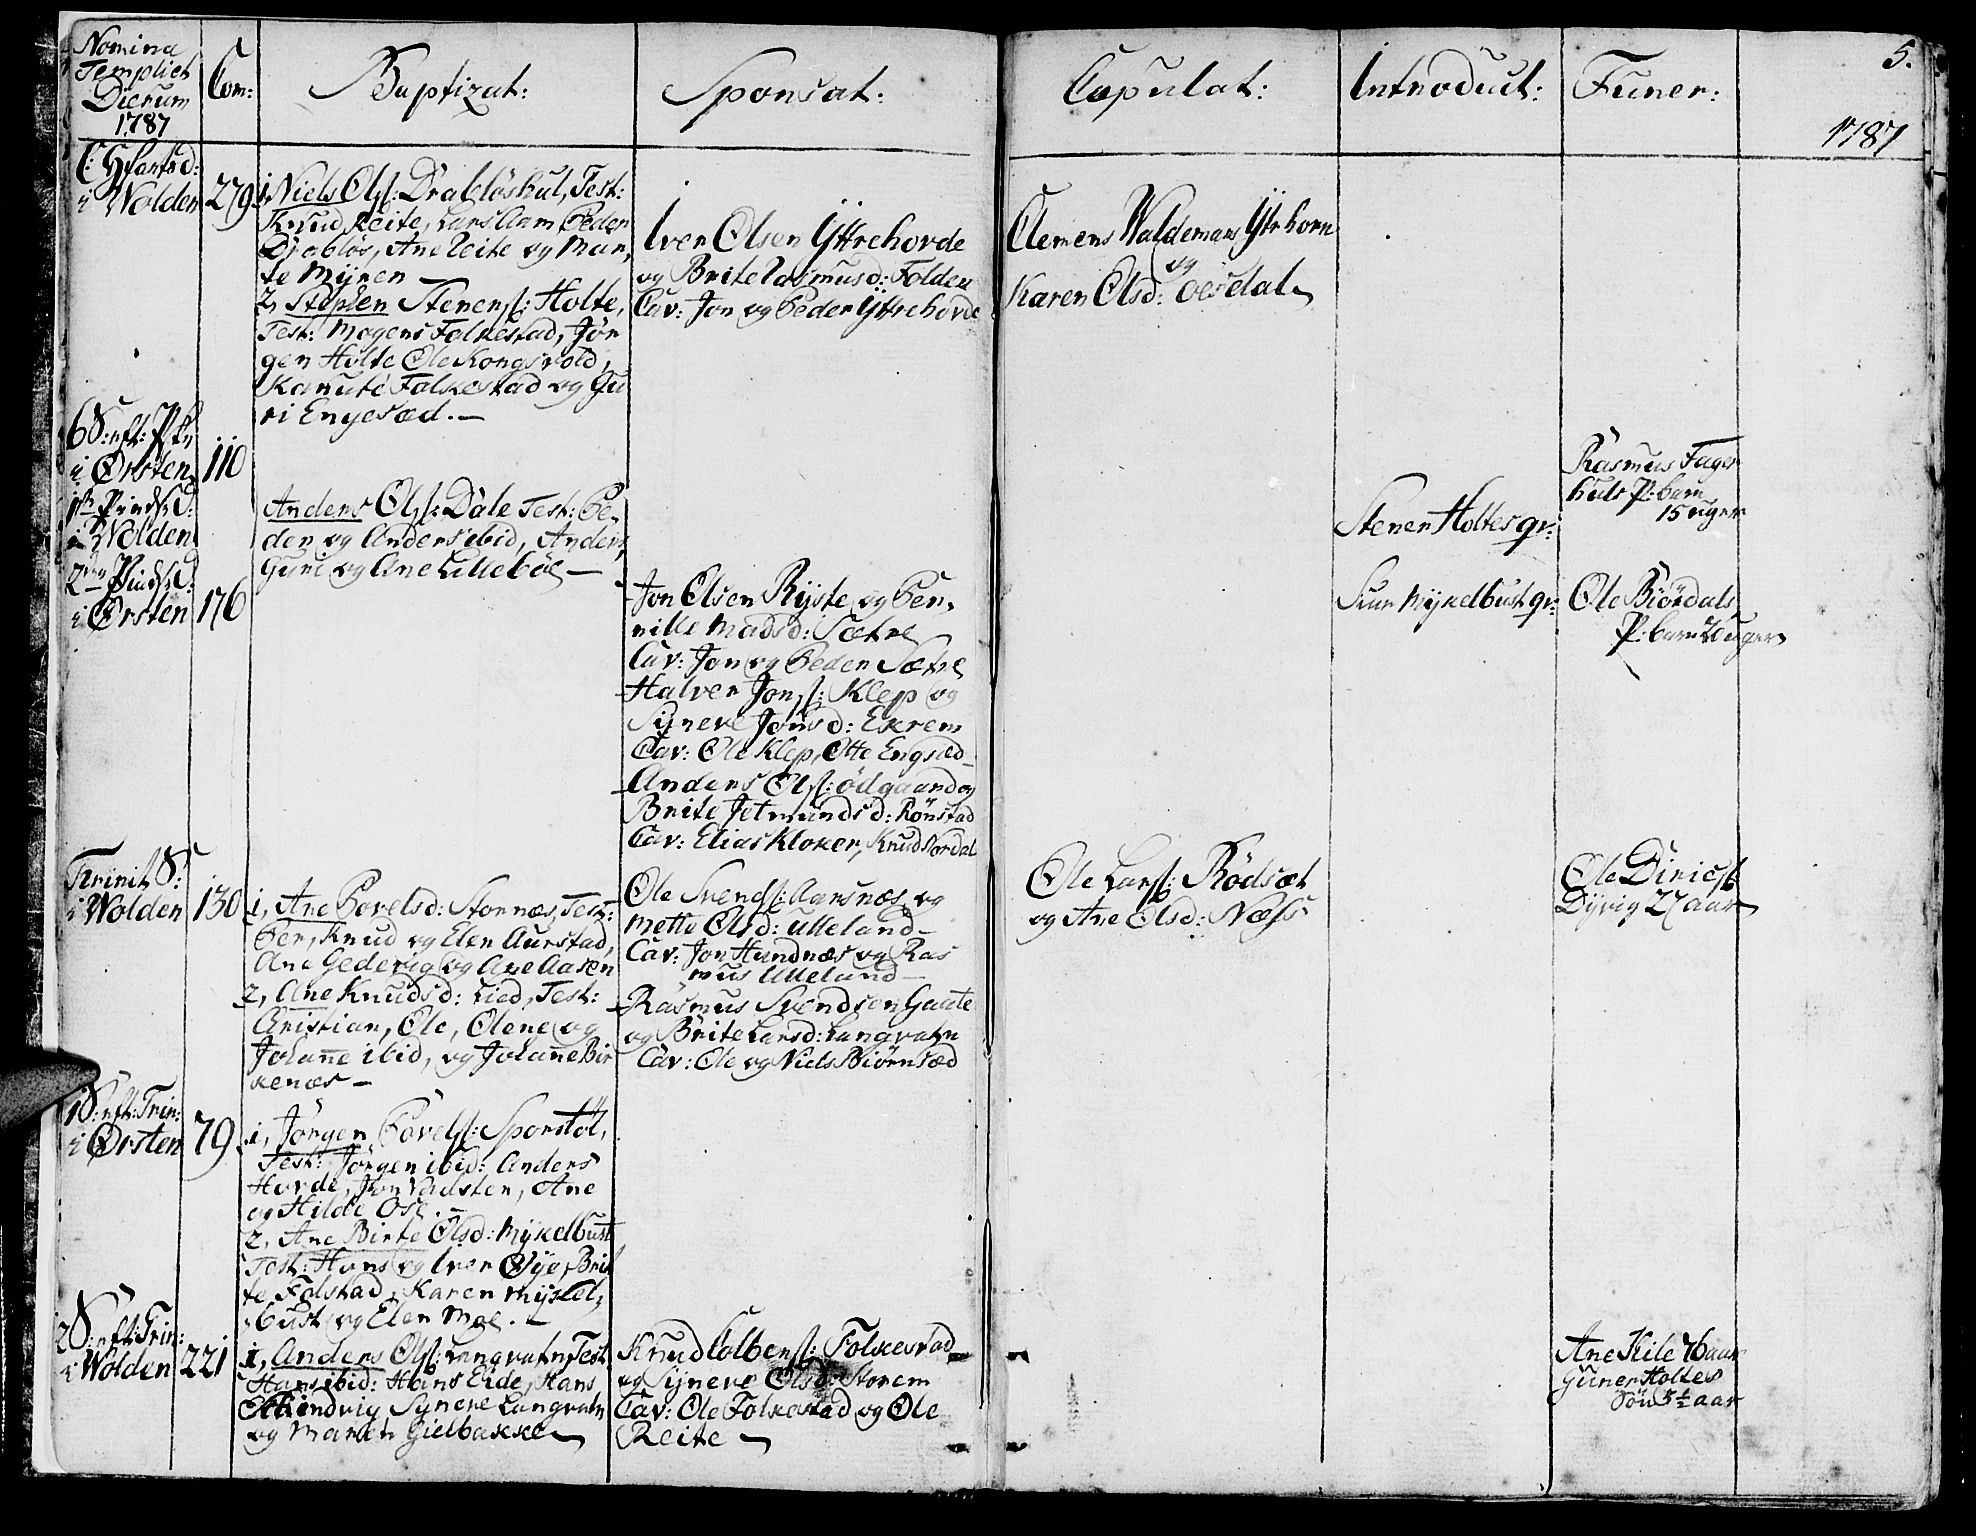 Nomina
Templi et
Dierum
1787
Com:
Baptizat:
Sponsat:
Copulat:
Introduct:
Funer:
5.
1787
C: Hfartsd:
i Wolden 279
1, Niels Ols: Drabløskul, Test:
Knud Reite, Lars Aam Peder
Drabløs, Ane Reite og Mar,
te Myren —
2, Stephen Steners: Holte,
Test: Mogens Folkestad, Jør
gen Holte Ole Kongsvold,
Kanute Folkestad og Gu
ri Engesæd. —
Iver Olsen Ÿttrehorde
og Brite Rasmusd: Folden
Cav: Jon og Peder Ÿttrehorde
Clemens Waldemars Ÿtrhorn
og
Karen Olsd: Osedal
6 S: eft: Pk
i Ørsten 110
Rasmus Fager
huls P: barn
15 uger
1ste Pindsd:
i Wolden
Anders Ols: Dale Test: Pe,
der og Anders ibid, Anders,
Guri og Ane Lillebøe —
Stener Holtes qv:
2den Pindsd:
i Ørsten 176
Jon Olsen Rÿste og Per,
nille Madsd: Sætre
Cav: Jon og Peder Sætre
Halver Jons: Klep og
Sÿneve Jonsd: Ekrem
Cav: Ole Klep, Otte Engsæd
Anders Ols: Ødgaard og
Brite Jetmundsd: Rønstad
Cav: Elias Kloker, Knud Nordal
Siur Mÿkelbust qv:
Ole Biørdals
P: barn uger
Trinit S:
i Wolden 130
1, Ane Povelsd: Stornæs, Test:
Per, Knud og Elen Aurstad,
Ane Gedevig og Ane Aasen
2, Ane Knudsd: Lied, Test:
Christian, Ole, Olene og
Johanne ibid, og Johanne Bir
kenæs —
Ole Svends: Aarsnæs og
Mette Olsd: Ulleland —
Cav: Jon Hundnæs og Ras
mus Ulleland —
Rasmus Svendsen Gaate
og Brite Larsd: Langvatn
Cav: Ole og Niels Biørnsæd
Ole Lars: Rødsæt
og Ane Olsd: Næss
Ole Dirics:
Dÿvig 27 aar
1 S: eft: Trin:
i Ørsten 79
1, Jørgen Povels: Sporstøl,
Test: Jørgen ibid: Anders
Horde, Jon Vadsten, Ane
og Hilde Ose. —
2, Ane Birte Olsd: Mÿkelbust
Test: Hans og Iver Øÿe, Bri
te Folstad, Karen Mÿkel,
bust og Elen Moe. —
2 S: eft: Trin:
i Wolden 221
1, Anders Ols: Langvatn Test
Hans ibid: Hans Eide, Hans
Synere Langvatn
og Maren Gielbakke
Knud Colbens: Folkestad
og Sÿneve Olsd: Storem
Cav: Ole Folkestad og Ole
Reite
Ane Kile 76 aar
Guner Holtes
Søn 5½ aar